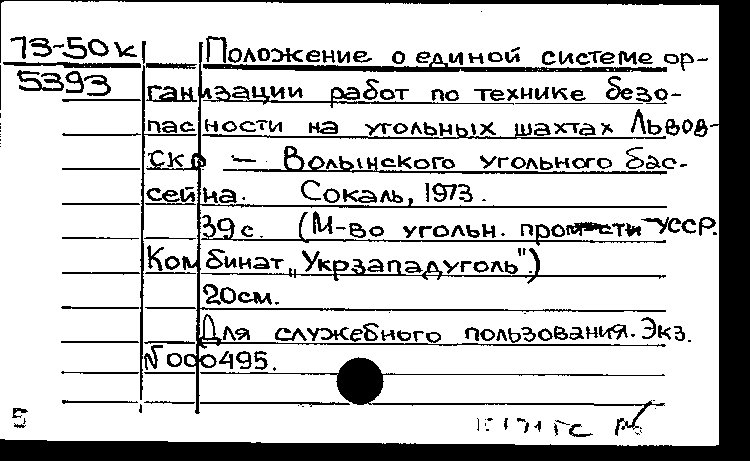 73-50к Положение о единой системе ор-
5393 ганизации работ по технике безо-
пасности на угольных шахтах Львов-
ско - Волынского угольного бас-
сейна. Сокаль, 1973.
39 с. (М-во угольн. пром-сти УССР.
Комбинат „Укрзападуголь")
20см.
Для служебного пользования. Экз.
№000495.
5